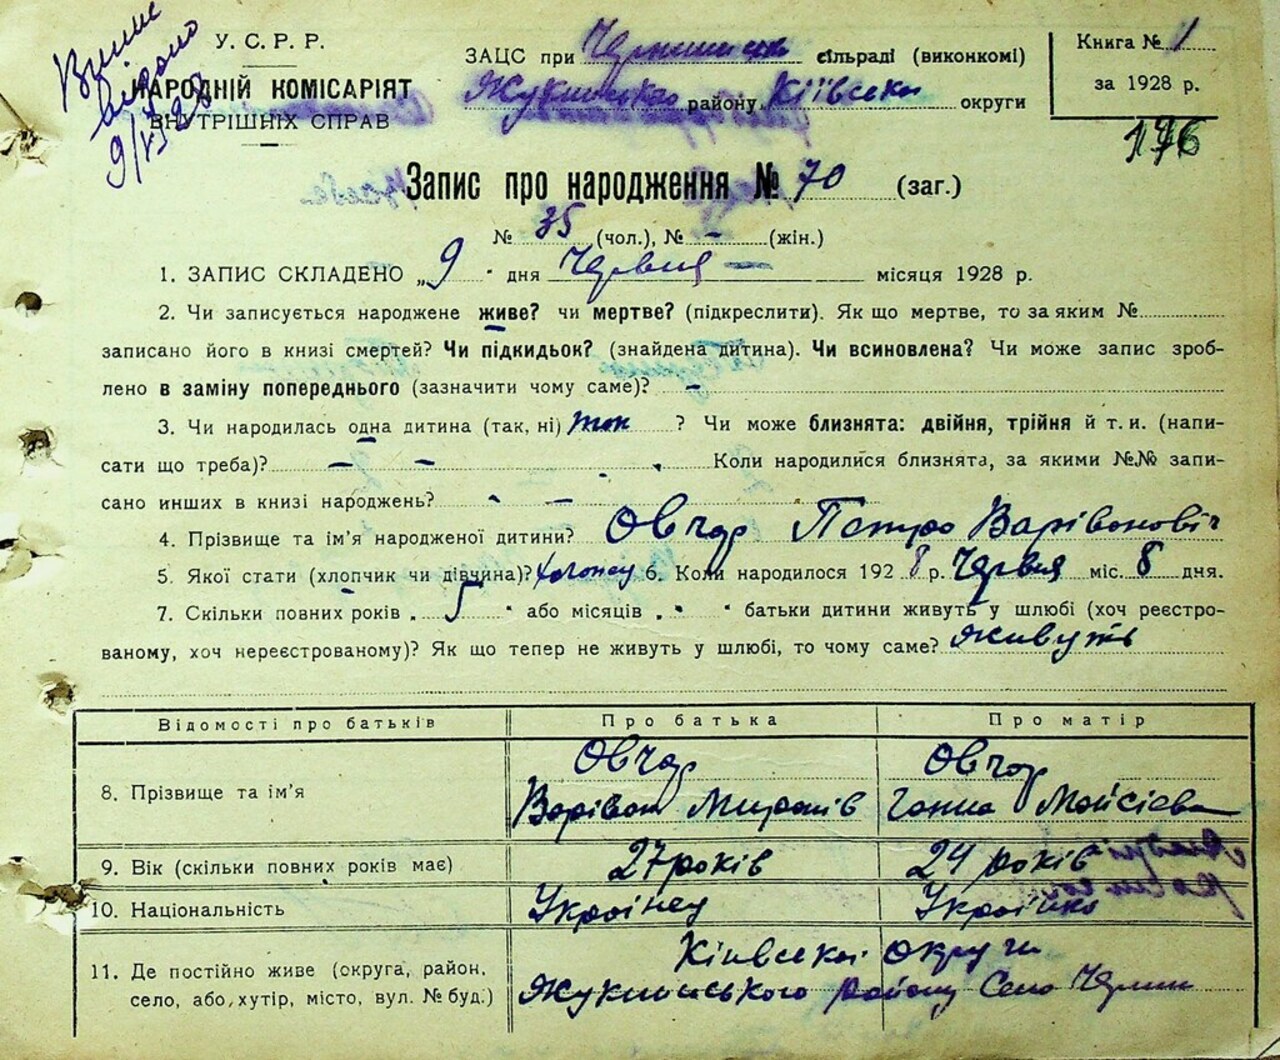 Випис видано 9/VI 28
У. С. Р. Р.
НАРОДНІЙ КОМІСАРІЯТ
ВНУТРІШНІХ СПРАВ
ЗАЦС при сільраді (виконкомі)
Жукинського району Київськи округи
Книга № 1
за 1928 р.
176
Запис про народження № 70 (заг.)
№ 35 (чол.), № – (жін.)
1. ЗАПИС СКЛАДЕНО „9" дня Червня — місяця 1928 р.
2. Чи записується народжене живе? чи мертве? (підкреслити). Як що мертве, то за яким №
записано його в книзі смертей? Чи підкидьок? (знайдена дитина). Чи всиновлена? Чи може запис зроб-
лено в заміну попереднього (зазначити чому саме)? –
3. Чи народилась одна дитина (так, ні) так ? Чи може близнята: двійня, трійня й т. и. (напи-
сати що треба)? – – Коли народилися близнята, за якими №№ запи-
сано инших в книзі народжень? – –
4. Прізвище та ім'я народженої дитини? Овчар Петро Варівонович
5. Якої стати (хлопчик чи дівчина)? хлопец 6. Коли народилося 1928 р. Червня міс. 8 дня.
7. Скільки повних років „ 5 " або місяців „ " батьки дитини живуть у шлюбі (хоч реєстро-
ваному, хоч нереєстрованому)? Як що тепер не живуть у шлюбі, то чому саме? живуть
Відомості про батьків Про батька Про матір
8. Прізвище та ім'я Овчар Варівон Миронів Овчар Ганна Мойсієва
9. Вік (скільки повних років має) 27 років 24 років
10. Національність Українец Українка
11. Де постійно живе (округа, район, Київської Округи
село, або хутір, місто, вул. № буд.) Жукинського району Село Чернин